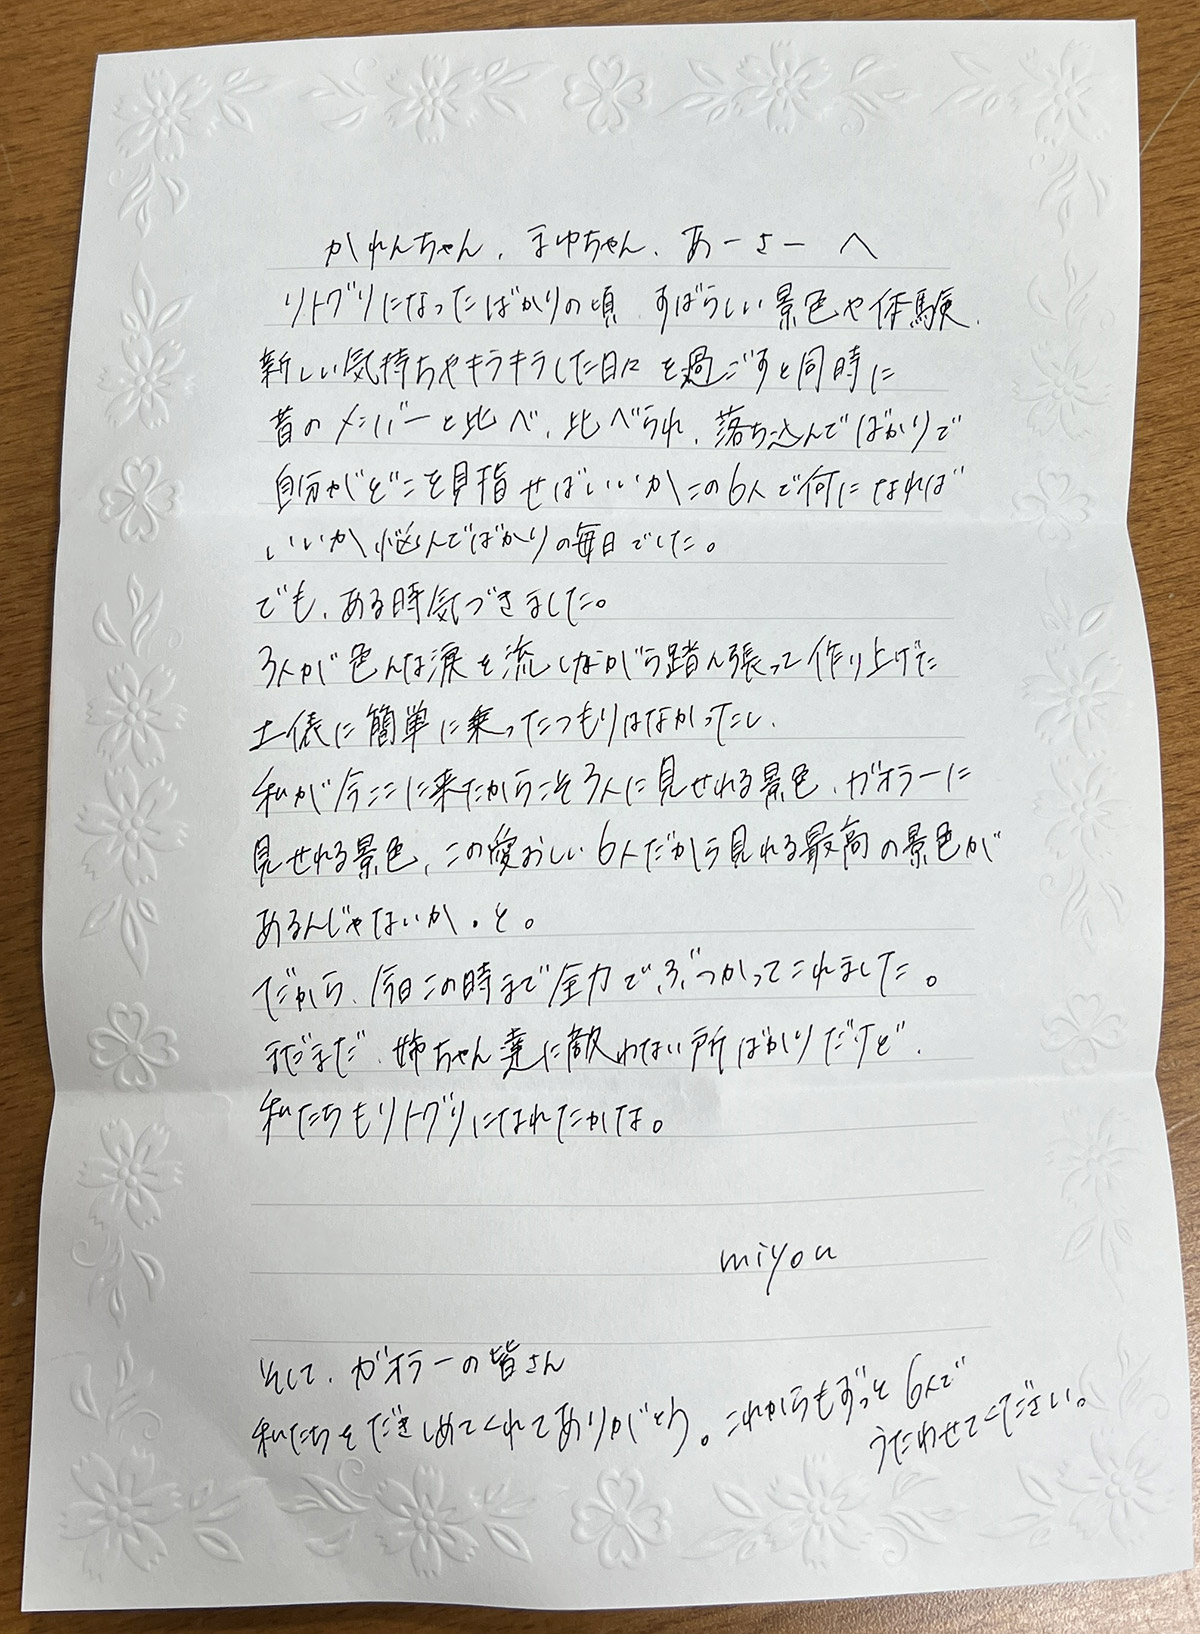 かれんちゃん、まゆちゃん、あーさーへ
リトグリになったばかりの頃、すばらしい景色や体験、
新しい気持ちやキラキラした日々を過ごすと同時に
昔のメンバーと比べ、比べられ、落ち込んでばかりで
自分がどこを目指せばいいかこの6人で何になれば
いいか悩んでばかりの毎日でした。
でも、ある時気づきました。
3人が色んな涙を流しながら踏ん張って作り上げた
土俵に簡単に乗ったつもりはなかったし、
私が今ここに来たからこそ3人に見せれる景色、ガオラーに
見せれる景色、この愛おしい6人だから見れる最高の景色が
あるんじゃないか。と。
だから、今日この時まで全力でぶつかってこれました。
まだまだ、姉ちゃん達に敵わない所ばかりだけど、
私たちもリトグリになれたかな。
miyou
そして、ガオラーの皆さん
私たちをだきしめてくれてありがとう。これからもずっと6人で
うたわせてください。